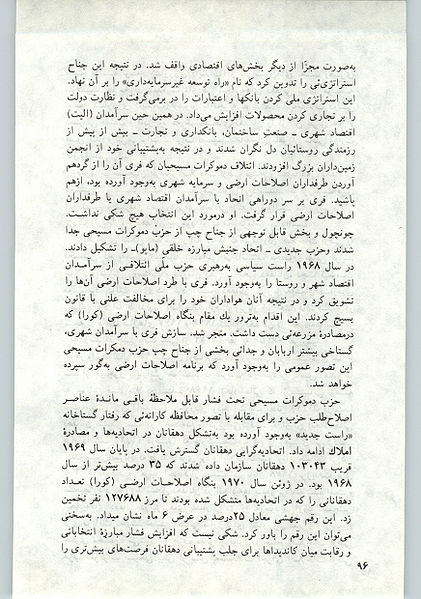 به‌صورت مجزّا از دیگر بخش‌های اقتصادی واقف شد. در نتیجه این جناح
استراتژی‌ئی را تدوین کرد که نام «راه توسعه غیرسرمایه‌داری» را بر آن نهاد.
این استراتژی ملی کردن بانکها و اعتبارات را در برمی‌گرفت و نظارت دولت
را بر تجاری کردن محصولات افزایش می‌داد. در همین حین سرآمدان (الیت)
اقتصاد شهری ـ صنعتِ ساختمان، بانکداری و تجارت ـ بیش از پیش از
رزمندگی روستائیان دل نگران شدند و در نتیجه به‌پشتیبانی خود از انجمن
زمین‌داران بزرگ افزودند. ائتلاف دموکرات مسیحیان که فری آن را از گردهم
آوردن طرفداران اصلاحات ارضی و سرمایه شهری به‌وجود آورده بود، ازهم
پاشید. فری بر سر دوراهی اتحاد با سرآمدان اقتصاد شهری یا طرفداران
اصلاحات ارضی قرار گرفت. او درمورد این انتخاب هیچ شکی نداشت.
چونچول و بخش قابل توجهی از جناح چپ از حزب دموکرات مسیحی جدا
شدند وحزب جدیدی ـ اتحاد جنبش مبارزه خلقی (ماپو)ـ را تشکیل دادند.
در سال ۱۹۶۸ راست سیاسی به‌رهبری حزب ملّی ائتلافی از سرآمدان
اقتصاد شهر و روستا را به‌وجود آورد. فری با طرد اصلاحات ارضی آن‌ها را
تشویق کرد و در نتیجه آنان هواداران خود را برای مخالفت علنی با قانون
بسیج کردند. این اقدام به‌ترور یك مقام بنگاه اصلاحات ارضی (کورا) که
درمصادرهٔ مزرعه‌ئی دست داشت. منجر شد. سازش فری با سرآمدان شهری،
گستاخی بیشتر اربابان و جدائی بخشی از جناح چپ حزب دمکرات مسیحی
این تصور عمومی را به‌وجود آورد که برنامه اصلاحات ارضی به‌گور سپرده
خواهد شد.
حزب دموکرات مسیحی تحت فشار قابل ملاحظهٔ باقی ماندهٔ عناصر
اصلاح‌طلب حزب و برای مقابله با تصور محافظه کارانه‌ئی که رفتار گستاخانه
«راست جدید» به‌وجود آورده بود به‌تشکل دهقانان در اتحادیه‌ها و مصادرهٔ
املاك ادامه داد. اتحادیه‌گرایی دهقانان گسترش یافت. در پایان سال ۱۹۶۹
قریب ۱۰۳۰۴۳ دهقانان سازمان داده شدند که ۳۵ درصد بیش‌تر از سال
۱۹۶۸ بود. در ژوئن سال ۱۹۷۰ بنگاه اصلاحات ارضی (کورا) تعداد
دهقانانی را که در اتحادیه‌ها متشکل شده بودند تا مرز ۱۲۷۶۸۸ نفر تخمین
زد. این رقم جهشی معادل ۲۵درصد در عرض ۶ ماه نشان میداد. به‌سختی
می‌توان این رقم را باور کرد. شکی نیست که افزایش فشار مبارزهٔ انتخاباتی
و رقابت میان کاندیداها برای جلب پشتیبانی دهقانان فرصت‌های بیش‌تری را
۹۶